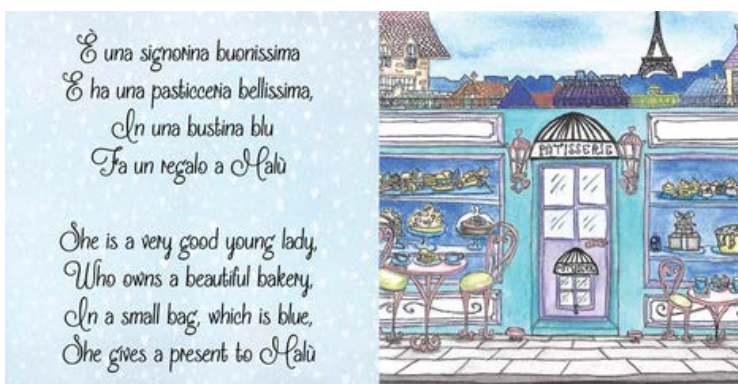 È una signorina buonissima
E ha una pasticceria bellissima,
In una bustina blu
Fa un regalo a Malù
She is a very good young lady,
Who owns a beautiful bakery,
In a small bag, which is blue,
She gives a present to Malù
PATISSERIE
PATISSERIE